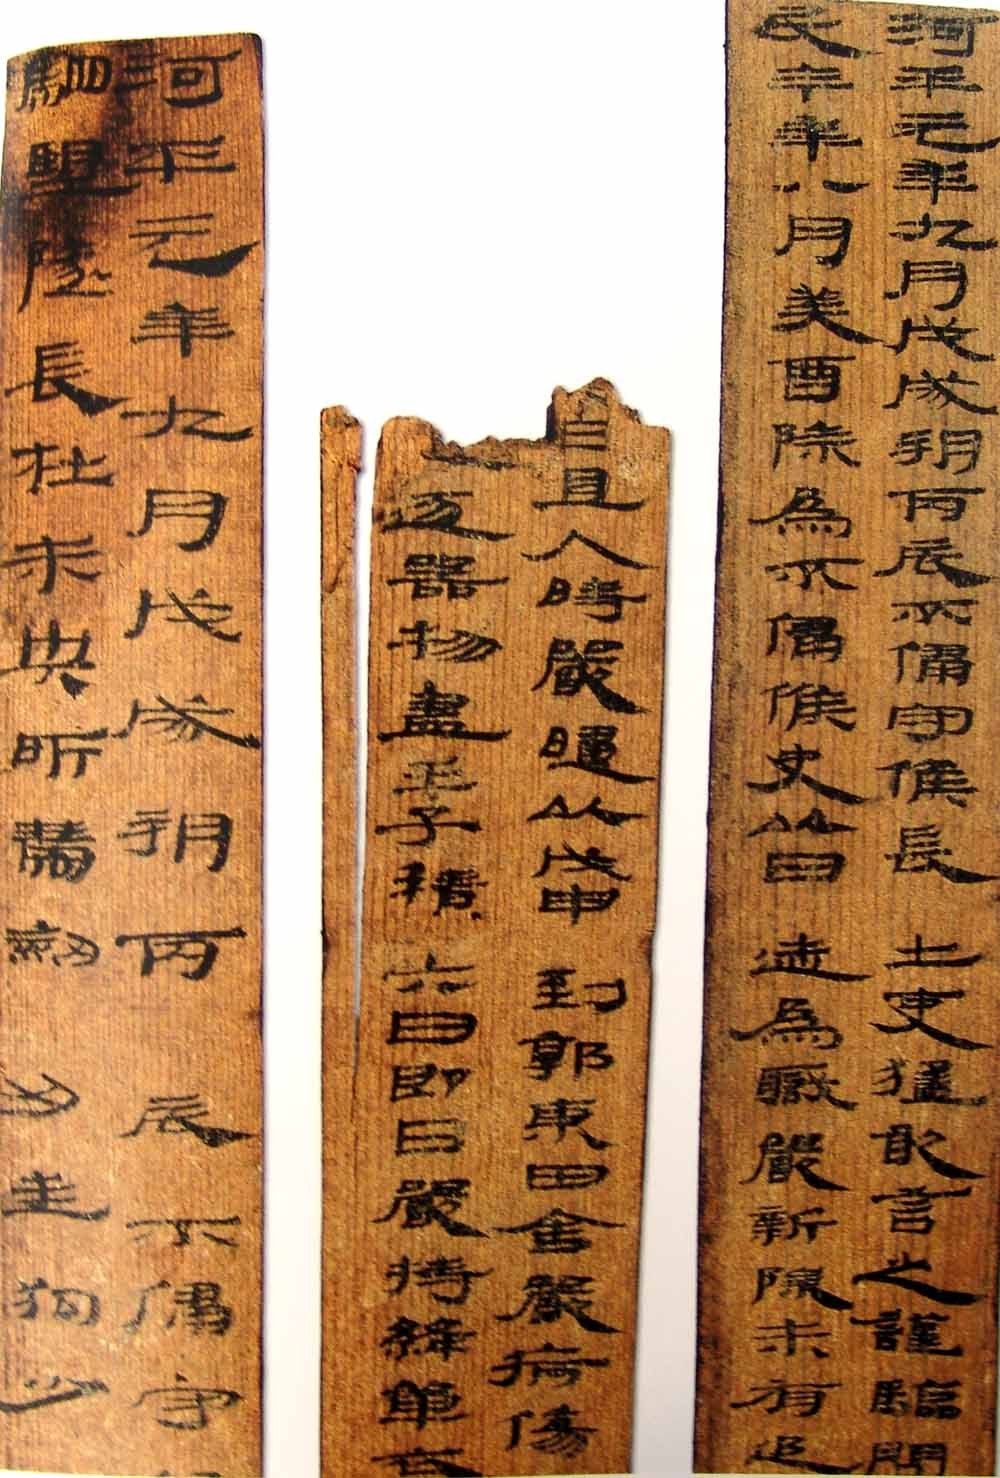 河平元年九月戊戌朔丙辰不侵守候長 士吏猛敢言之謹驗問
民今年八月癸酉除為不侵候史以日 迹為職嚴新除未有追
日且入時嚴歸以戊申 到郭東田舍嚴病傷
逐器物盡壬子積 六日即日嚴持絳單衣
河平元年九月戊戌朔丙 辰不侵守
駟望隧長杜未央所帶劍 刃 狗少